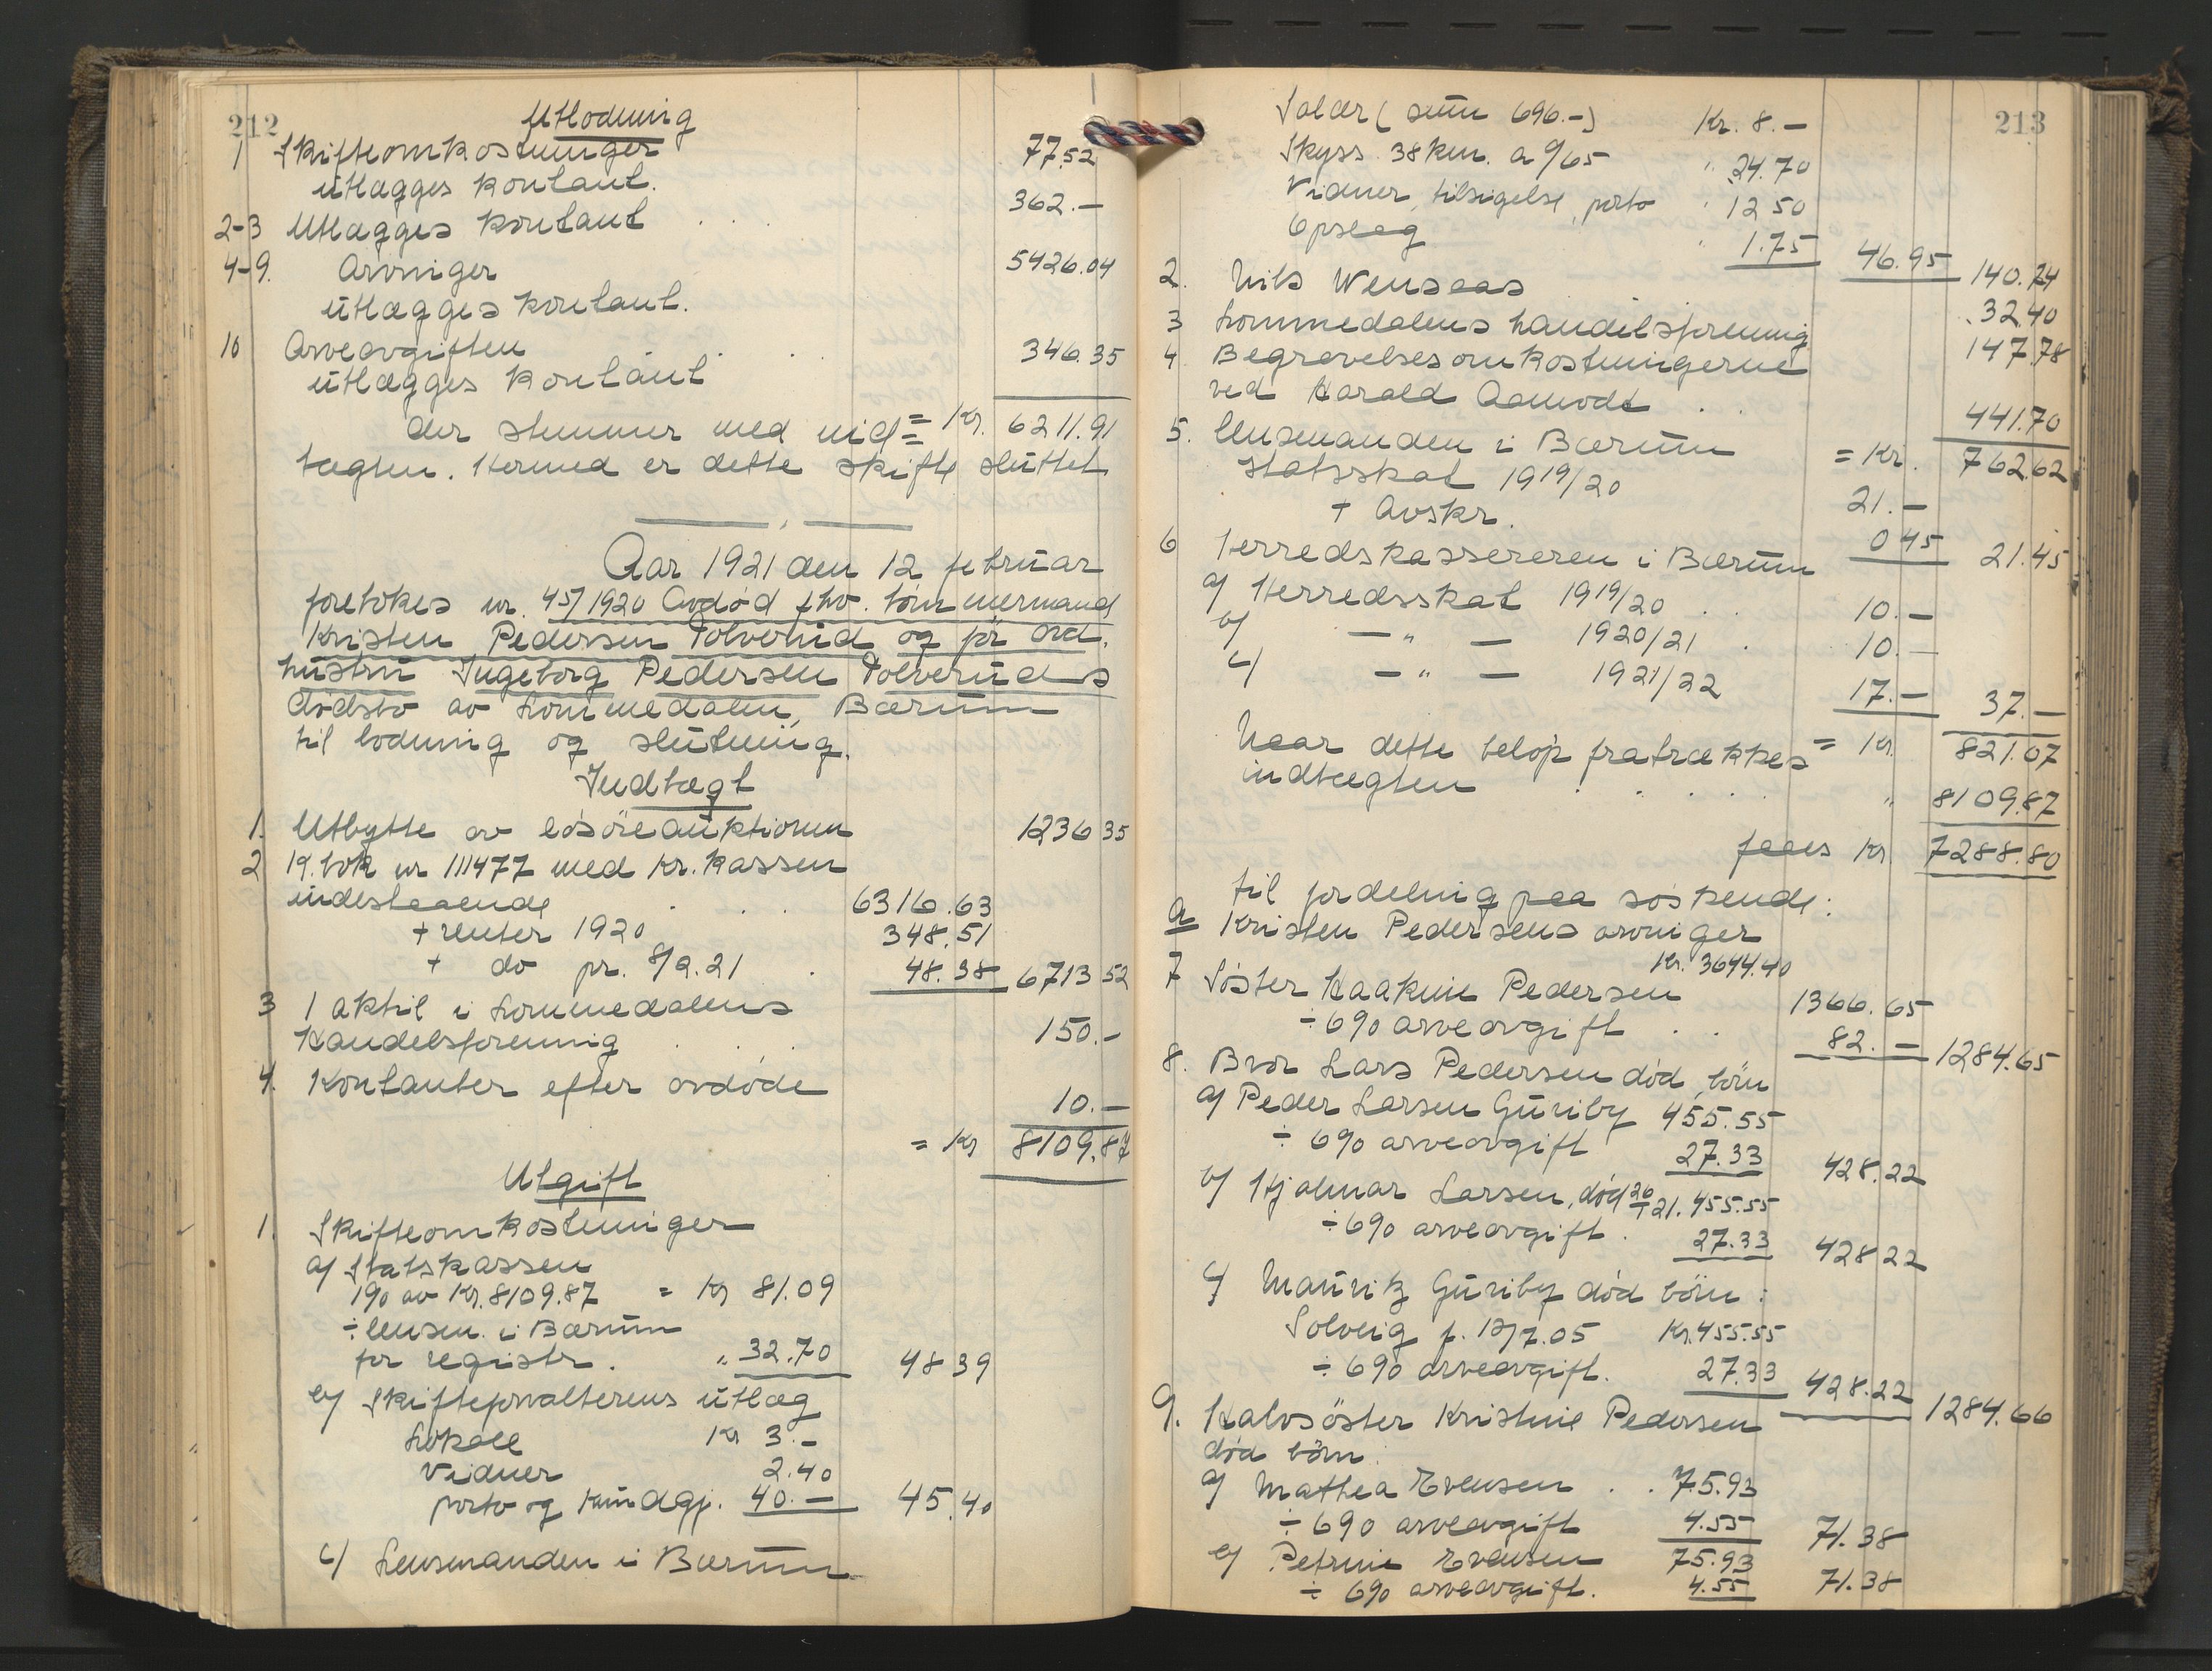 212
Utlodning
1 Skifteomkostninger
utlægges kontant. 77.52
2-3 Utlægges kontant . . 362.—
4-9. Arvninger 5426.04
utlægges kontant.
10 Arveavgiften . . 346.35
utlægges kontant
= Kr. 6211.91
der stemmer med ind=
tægten. Hermed er dette skifte sluttet
Aar 1921 den 12 februar
foretokes nr. 457/1920 Avdød fhv. tømmermand
Kristen Pedersen Tolverud og før avd.
hustru Ingeborg Pedersen Tolveruds
dødsbo av Lommedalen, Bærum
til lodning og slutning.
Indtægt
1. Utbytte av løsøreauktionen 1236 35
2 19. bok nr 111477 med Kr. Kassen
indestaaende . . . 6316.63
+ renter 1920 348.51
+ do pr. 8/2.21 . 48.38 6713 52
3 1 aktie i Lommedalens
Handelsforening . . . 150.—
4. Kontanter efter avdøde 10.—
= Kr 8109.87
Utgift
1. Skifteomkostninger
a/ Statskassen
1% av Kr. 8109.87 = Kr 81.09
÷ lensm. i Bærum
for registr. " 32.70 48 39
b/ Skifteforvalterens utlæg
Lokale Kr 3.—
Vidner 2.40
porto og kundgj. 40.— 45.40
c/ Lensmanden i Bærum
213
Salær ( sum 696.—) Kr. 8.—
Skyss 38 km. a 0/65 " 24.70
Vidner, tilsigelse, porto " 12 50
Opslag " 1.75 46.95 140.74
2. Nils Wensaas 32.40
3 Lommedalens handelsforening 147.78
4 Begravelsesomkostningerne
ved Harald Aamodt . . 441.70
= Kr. 762.62
5. Lensmanden i Bærum
Statsskat 1919/20 21.—
+ Avskr. 0 45 21.45
6 Herredskassereren i Bærum
a/ Herredsskat 1919/20 . . 10.—
b/ — " — 1920/21 . 10.—
c/ — " — 1921/22 17.— 37.—
= Kr. 821.07
Naar dette beløp fratrækkes
indtægten . . . . " 8109.87
faaes Kr 7288.80
til fordeling paa søskende:
A Kristen Pedersens arvninger
Kr. 3644.40
7 Søster Haakine Pedersen 1366.65
÷ 6% arveavgift . . 82.— 1284.65
8. Bror Lars Pedersen død, børn
a/ Peder Larsen Guriby 455.55
÷ 6% arveavgift 27.33 428.22
b/ Hjalmar Larsen, død 26/1 21. 455.55
÷ 6% arveavgift . 27.33 428 22
c/ Mauritz Guriby død børn:
Solveig f. 12/7.05 Kr. 455.55
÷ 6% arveavgift. 27.33 428.22 1284.66
9. Halvsøster Kristine Pedersen
død børn:
a/ Mathea Evensen . . 75.93
÷ 6% arveavgift 4.55 71.38
b/ Petrine Evensen 75.93
÷ 6% arveavgift. 4.55 71.38